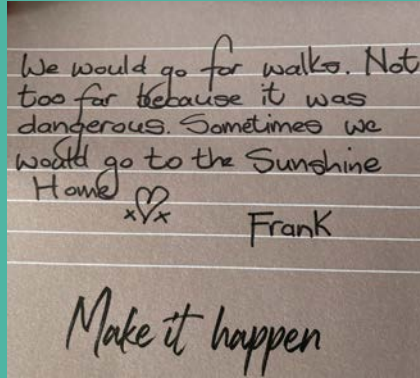 We would go for walks. Not
too far bebause it was
dangerous. Sometimes we
would go to the Sunshine
Home
x♡x
Frank
Make it happen